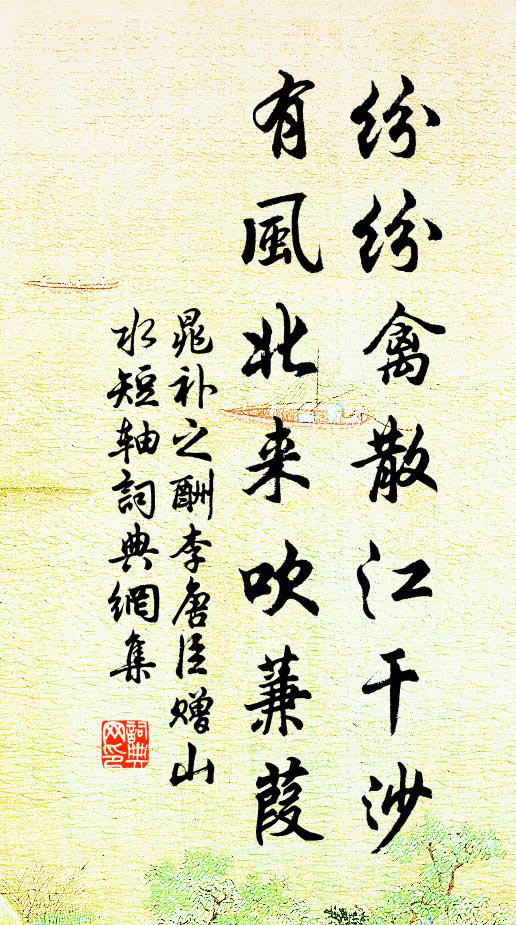 纷纷禽散江干沙
有風北来吹蒹葭
晁补之酬李唐臣赠山
水短轴詞典網集
詞典
网印